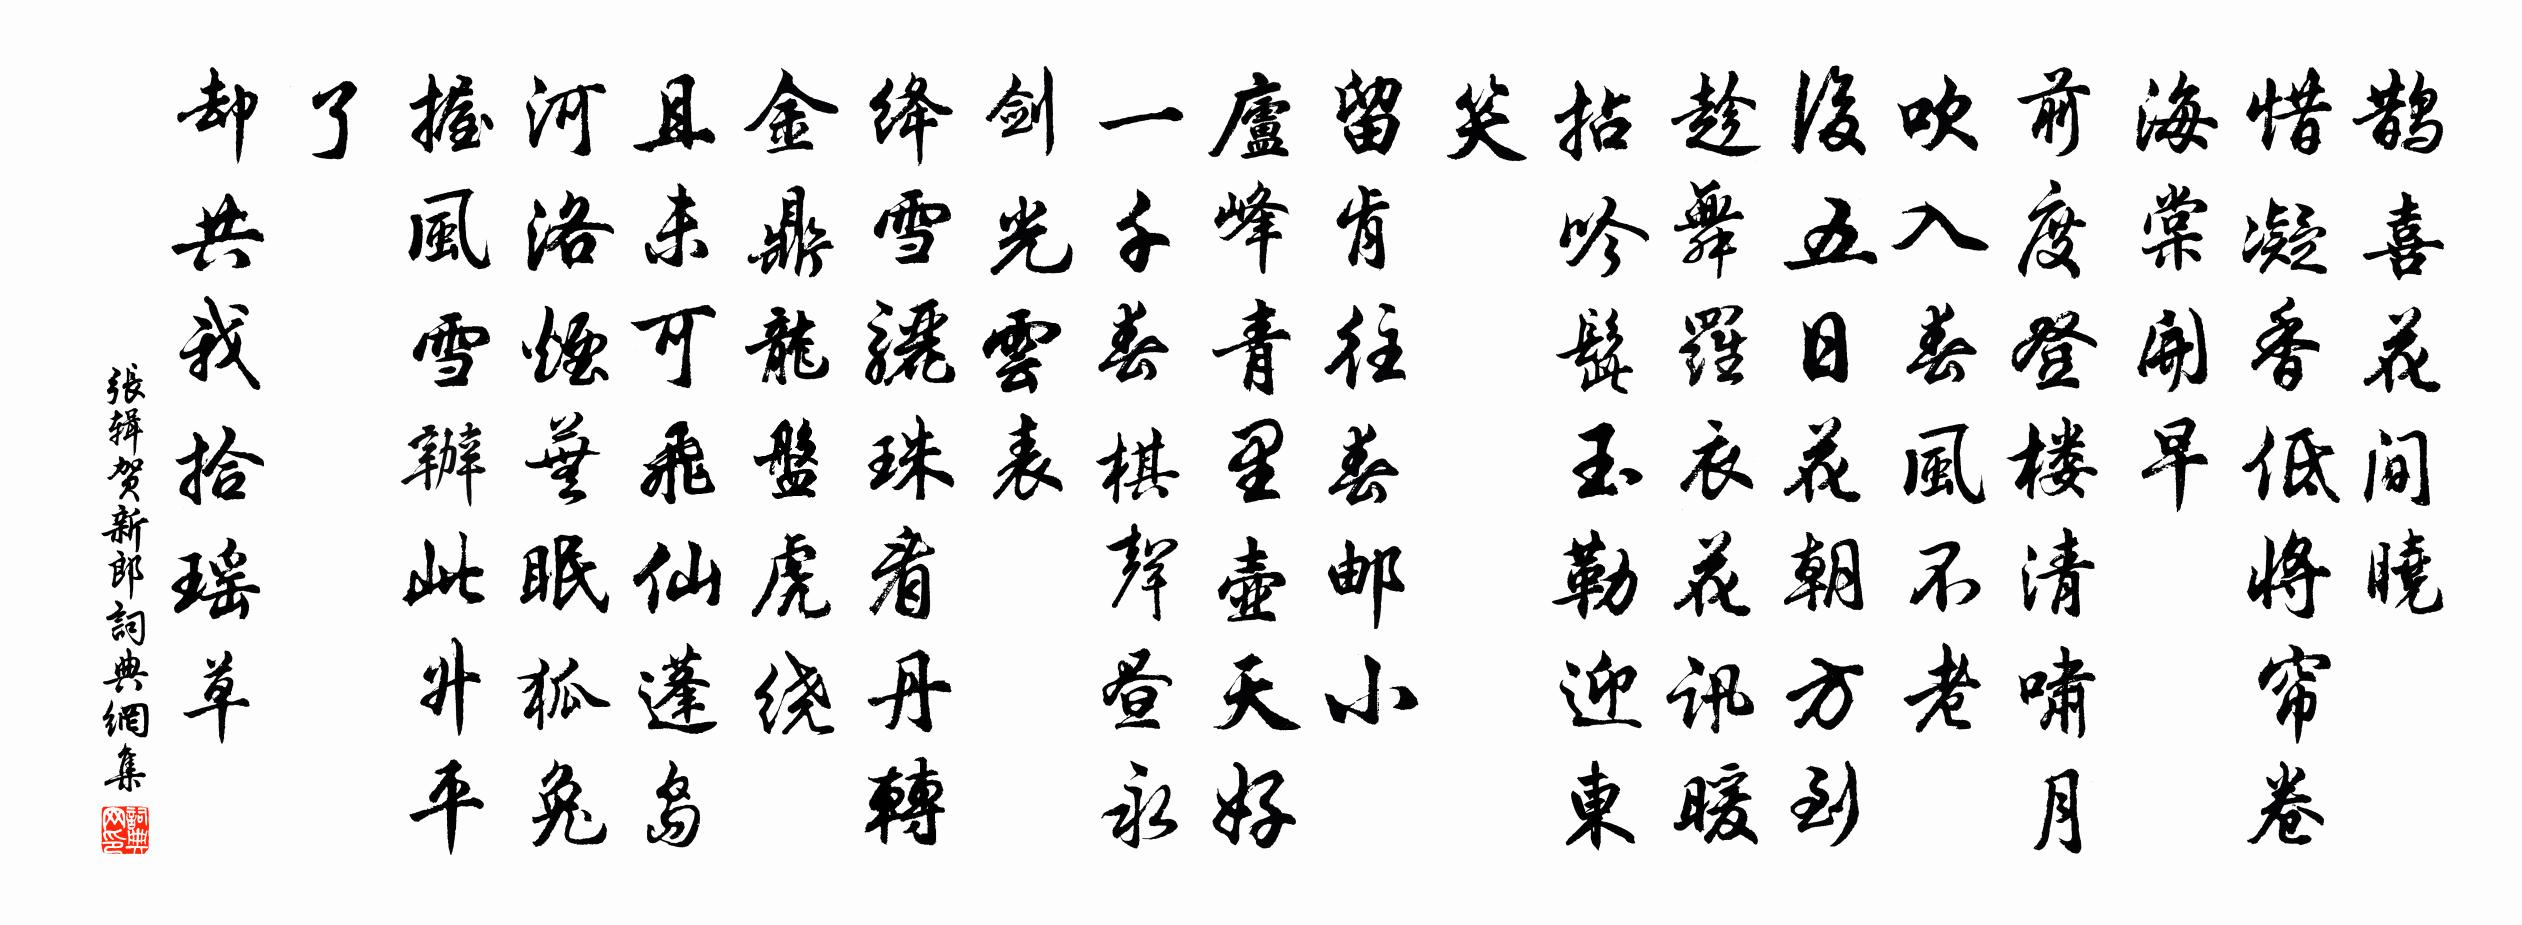 鹊喜花间曉
惜凝香低將帘卷
海棠開早
前度登楼清嘯月
吹入春風不老
後五日花朝方到
趁舞羅衣花讯暖
拈吟髭玉勒迎東
笑
留肯往春邮小
廬峰青里壺天好
一千春棋聲昼永
剑光雲表
绛雪骊珠看丹轉
金鼎龍盤虎绕
且未可飛仙蓬岛
河洛煙蕪眠狐兔
握風雪辦此升平
了
却共我拾瑶草
張辑贺新郎詞典網集
詞典网印